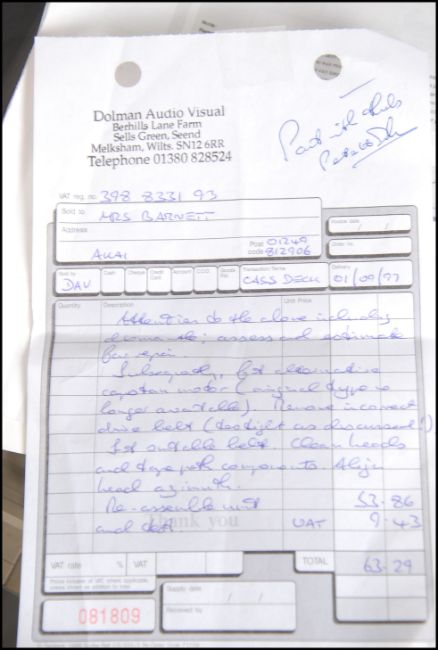 Dolman Audio Visual
Berhills Lane Farm
Sells Green, Seend
Melksham, Wilts. SN12 6RR
Telephone 01380 828524
Paid with thanks
VAT reg. no. 398 8331 93
Sold to MRS BARNETT
Invoice date / /
Address
Order no.
AKAI Post code 01249 812906
Sold by DAV Cash Cheque Credit Card Account C.O.D. Goods Transaction/Terms CASS DECK Delivery 01/09/97
Quantity Description Unit Price
Attention to the above including
dismantle; assess and estimate
for repair.
Subsequently, fit alternative
capstan motor (original type no
longer available). Remove incorrect
drive belt (too tight as discussed!)
Fit suitable belt. Clean heads
and tape path components. Align
head azimuth.
Re-assemble unit 53.86
and test. thank you VAT 9.43
VAT rate % VAT TOTAL 63.29
Supply date / /
081809 Received by